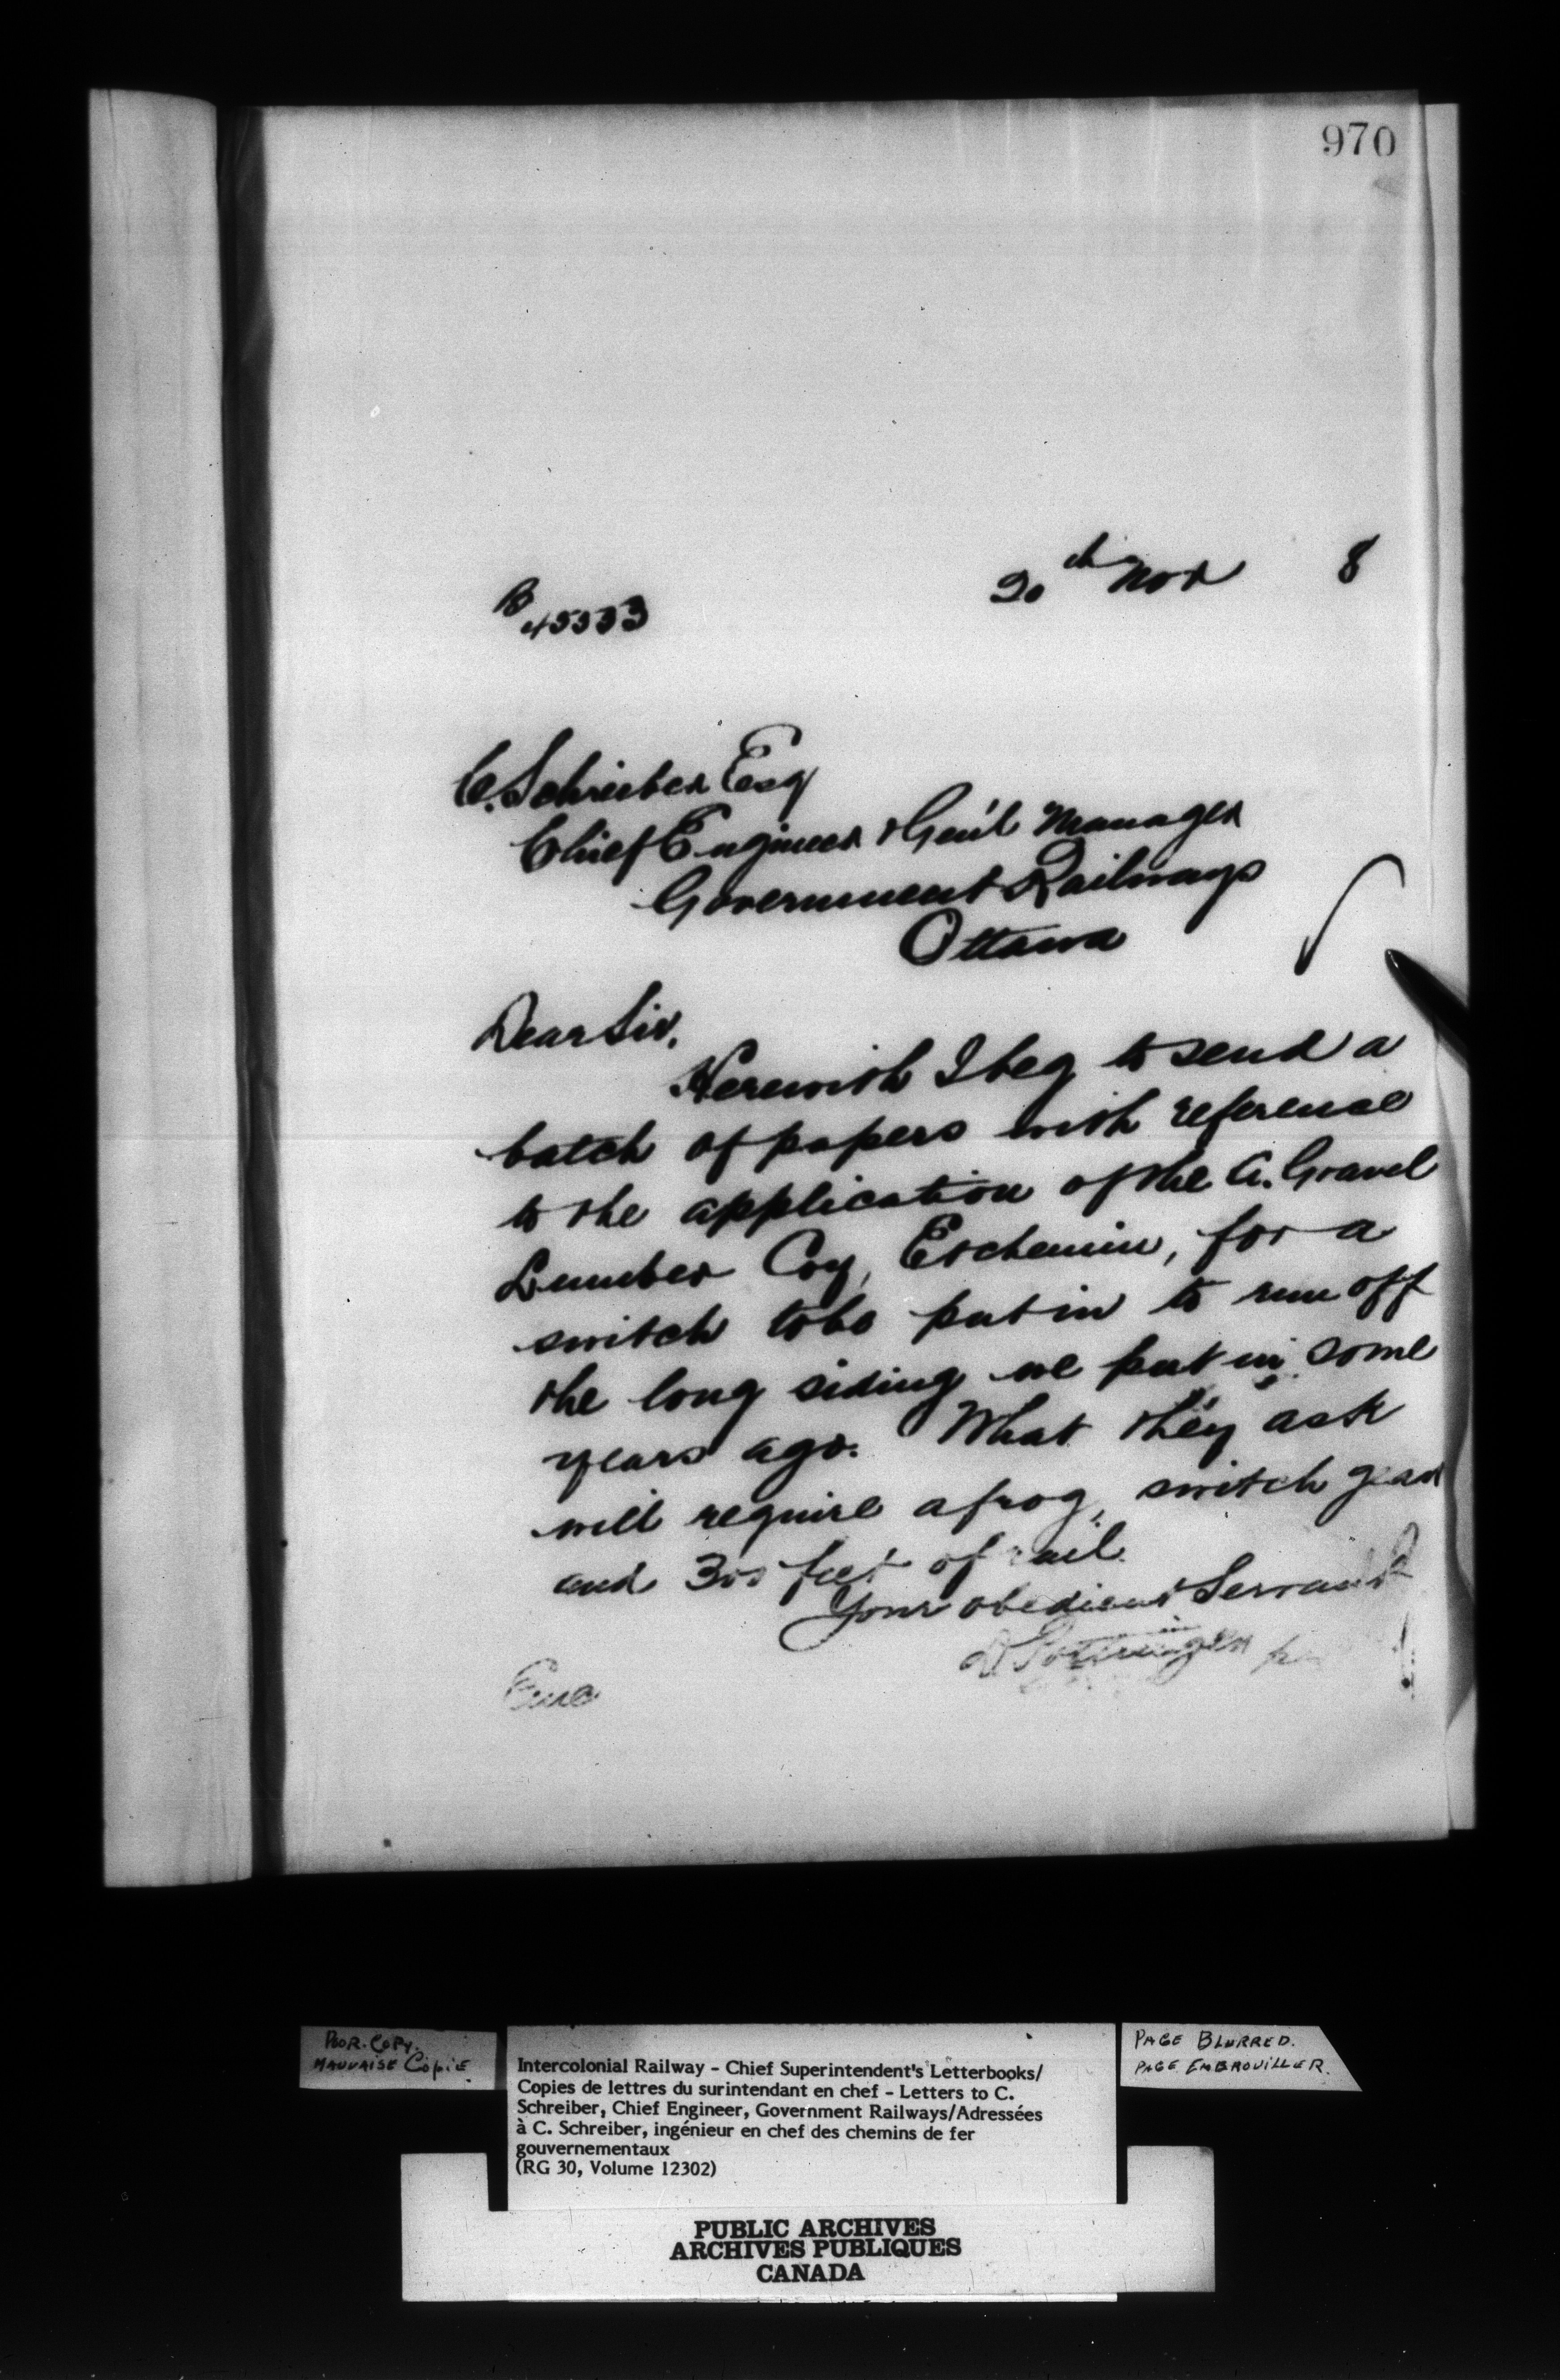 970
20th Nov 8
B
45333
C. Schreiber Esq
Chief Engineer & Gen'l Manager
Government Railways
Ottawa
Dear Sir,
Herewith I beg to send a
batch of papers with reference
to the application of the A. Gravel
Lumber Coy, Etchemin, for a
switch to be put in to run off
the long siding we put in some
years ago. What they ask
will require a frog, switch gear
and 300 feet of rail.
Your obedient Servant
D Pottinger
Enc
POOR COPY.
MAUVAISE COPIE
Intercolonial Railway - Chief Superintendent's Letterbooks/
Copies de lettres du surintendant en chef - Letters to C.
Schreiber, Chief Engineer, Government Railways/Adressées
à C. Schreiber, ingénieur en chef des chemins de fer
gouvernementaux
(RG 30, Volume 12302)
PAGE BLURRED.
PAGE EMBROUILLER.
PUBLIC ARCHIVES
ARCHIVES PUBLIQUES
CANADA